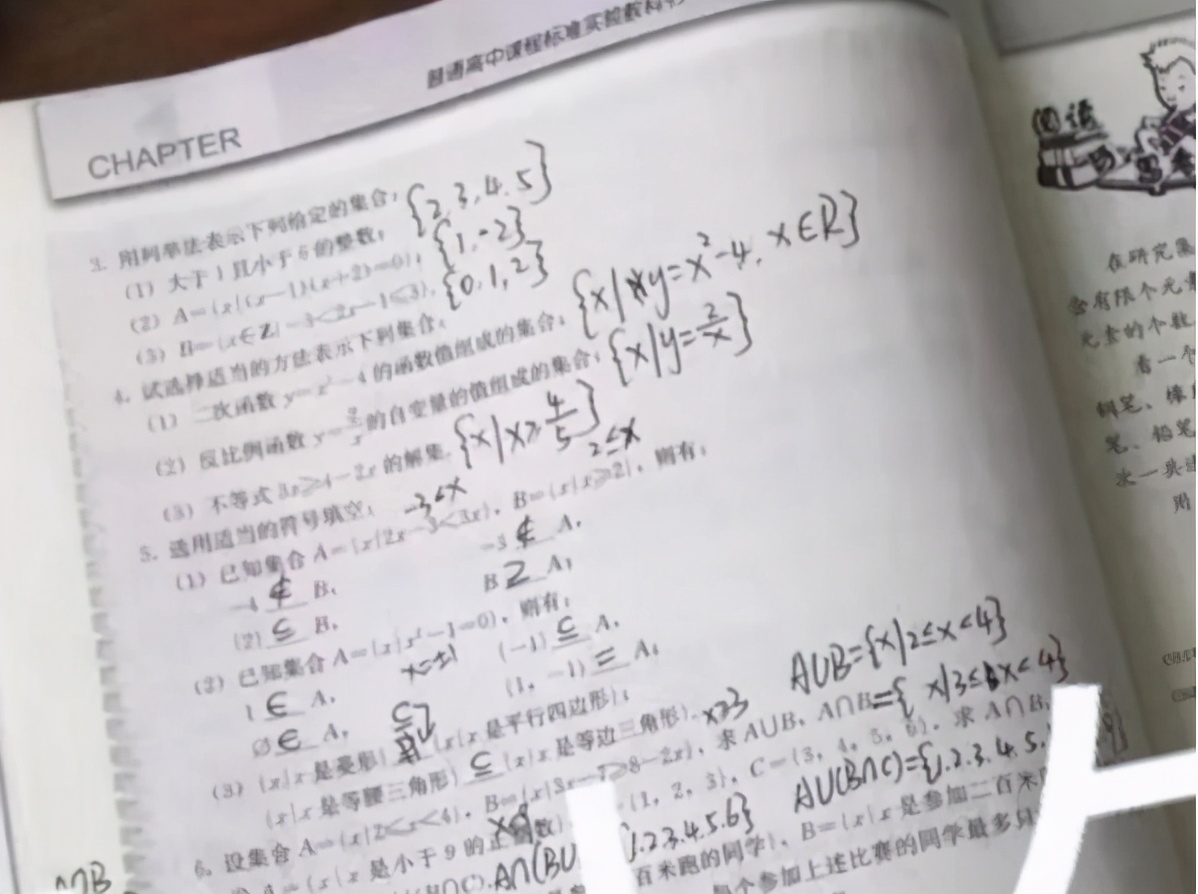 普通高中课程标准实验教科
CHAPTER
3. 用列举法表示下列给定的集合: {2,3,4,5}
(1) 大于1且小于6的整数; {1,-2}
(2) A={x|(x-1)(x+2)=0}; {0,1,2}
(3) B={x∈Z|-3<2x-1≤3}.
4. 试选择适当的方法表示下列集合:
(1) 二次函数 y=x²-4 的函数值组成的集合; {x|y=x²-4, x∈R}
(2) 反比例函数 y=2/x 的自变量的值组成的集合; {x|y=2/x}
(3) 不等式 3x≥4-2x 的解集. {x|x≥4/5}
5. 选用适当的符号填空: -3<x 2≤x
(1) 已知集合 A={x|2x-3<3x}, B={x|x≥2}, 则有:
-4 ∉ B, -3 ∉ A,
{2} ⊆ B, B A;
(2) 已知集合 A={x|x²-1=0}, 则有: x=±1
1 ∈ A, {-1} ⊆ A,
∅ ∈ A, {1, -1} = A;
(3) {x|x 是菱形} ⊆ {x|x 是平行四边形};
{x|x 是等腰三角形} ⊆ {x|x 是等边三角形}. x≥3
A∪B={x|2≤x<4}
6. 设集合 A={x|2≤x<4}, B={x|3x-7≥8-2x}, 求 A∪B, A∩B={x|3≤x<4}
A={x|x 是小于9的正 数} {1, 2, 3}, C={3, 4, 5, 6}, 求 A∩B,
A∩(B∪ {1.2.3.4.5.6} A∪(B∩C)={1.2.3.4.5.
A∩B
百米跑的同学}, B={x|x 是参加二百米
个参加上述比赛的同学最多只
阅读
与
在研究集
含有限个元素
元素的个数
看一个
钢笔、橡
笔、铅笔
次一共